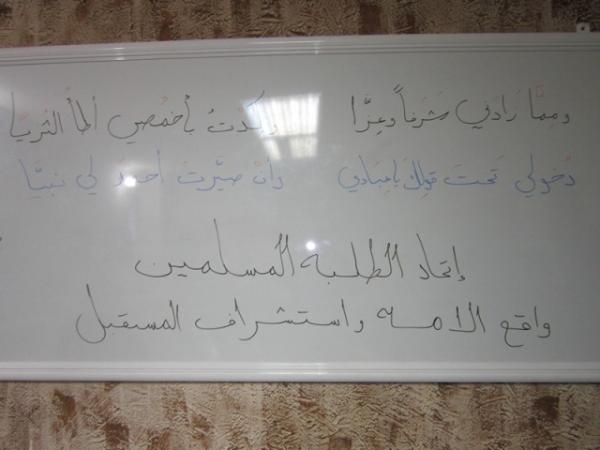 ومِمَّا زَادَني شَرَفاً وعِزَّا وكِدْتُ بأخمُصي أطأُ الثُريَا
دُخولي تَحتَ قولِكَ يا عِبَادي وأنْ صَيَّرتَ أحمدَ لي نبيَّا
إتحاد الطلبه المسلمين
واقع الامه واستشراف المستقبل